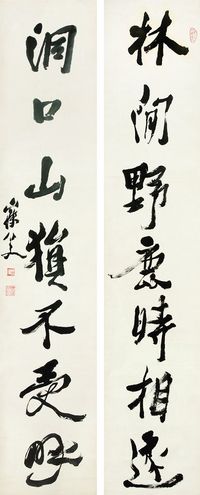 林間野鹿時相逐
洞口山猿不受呼